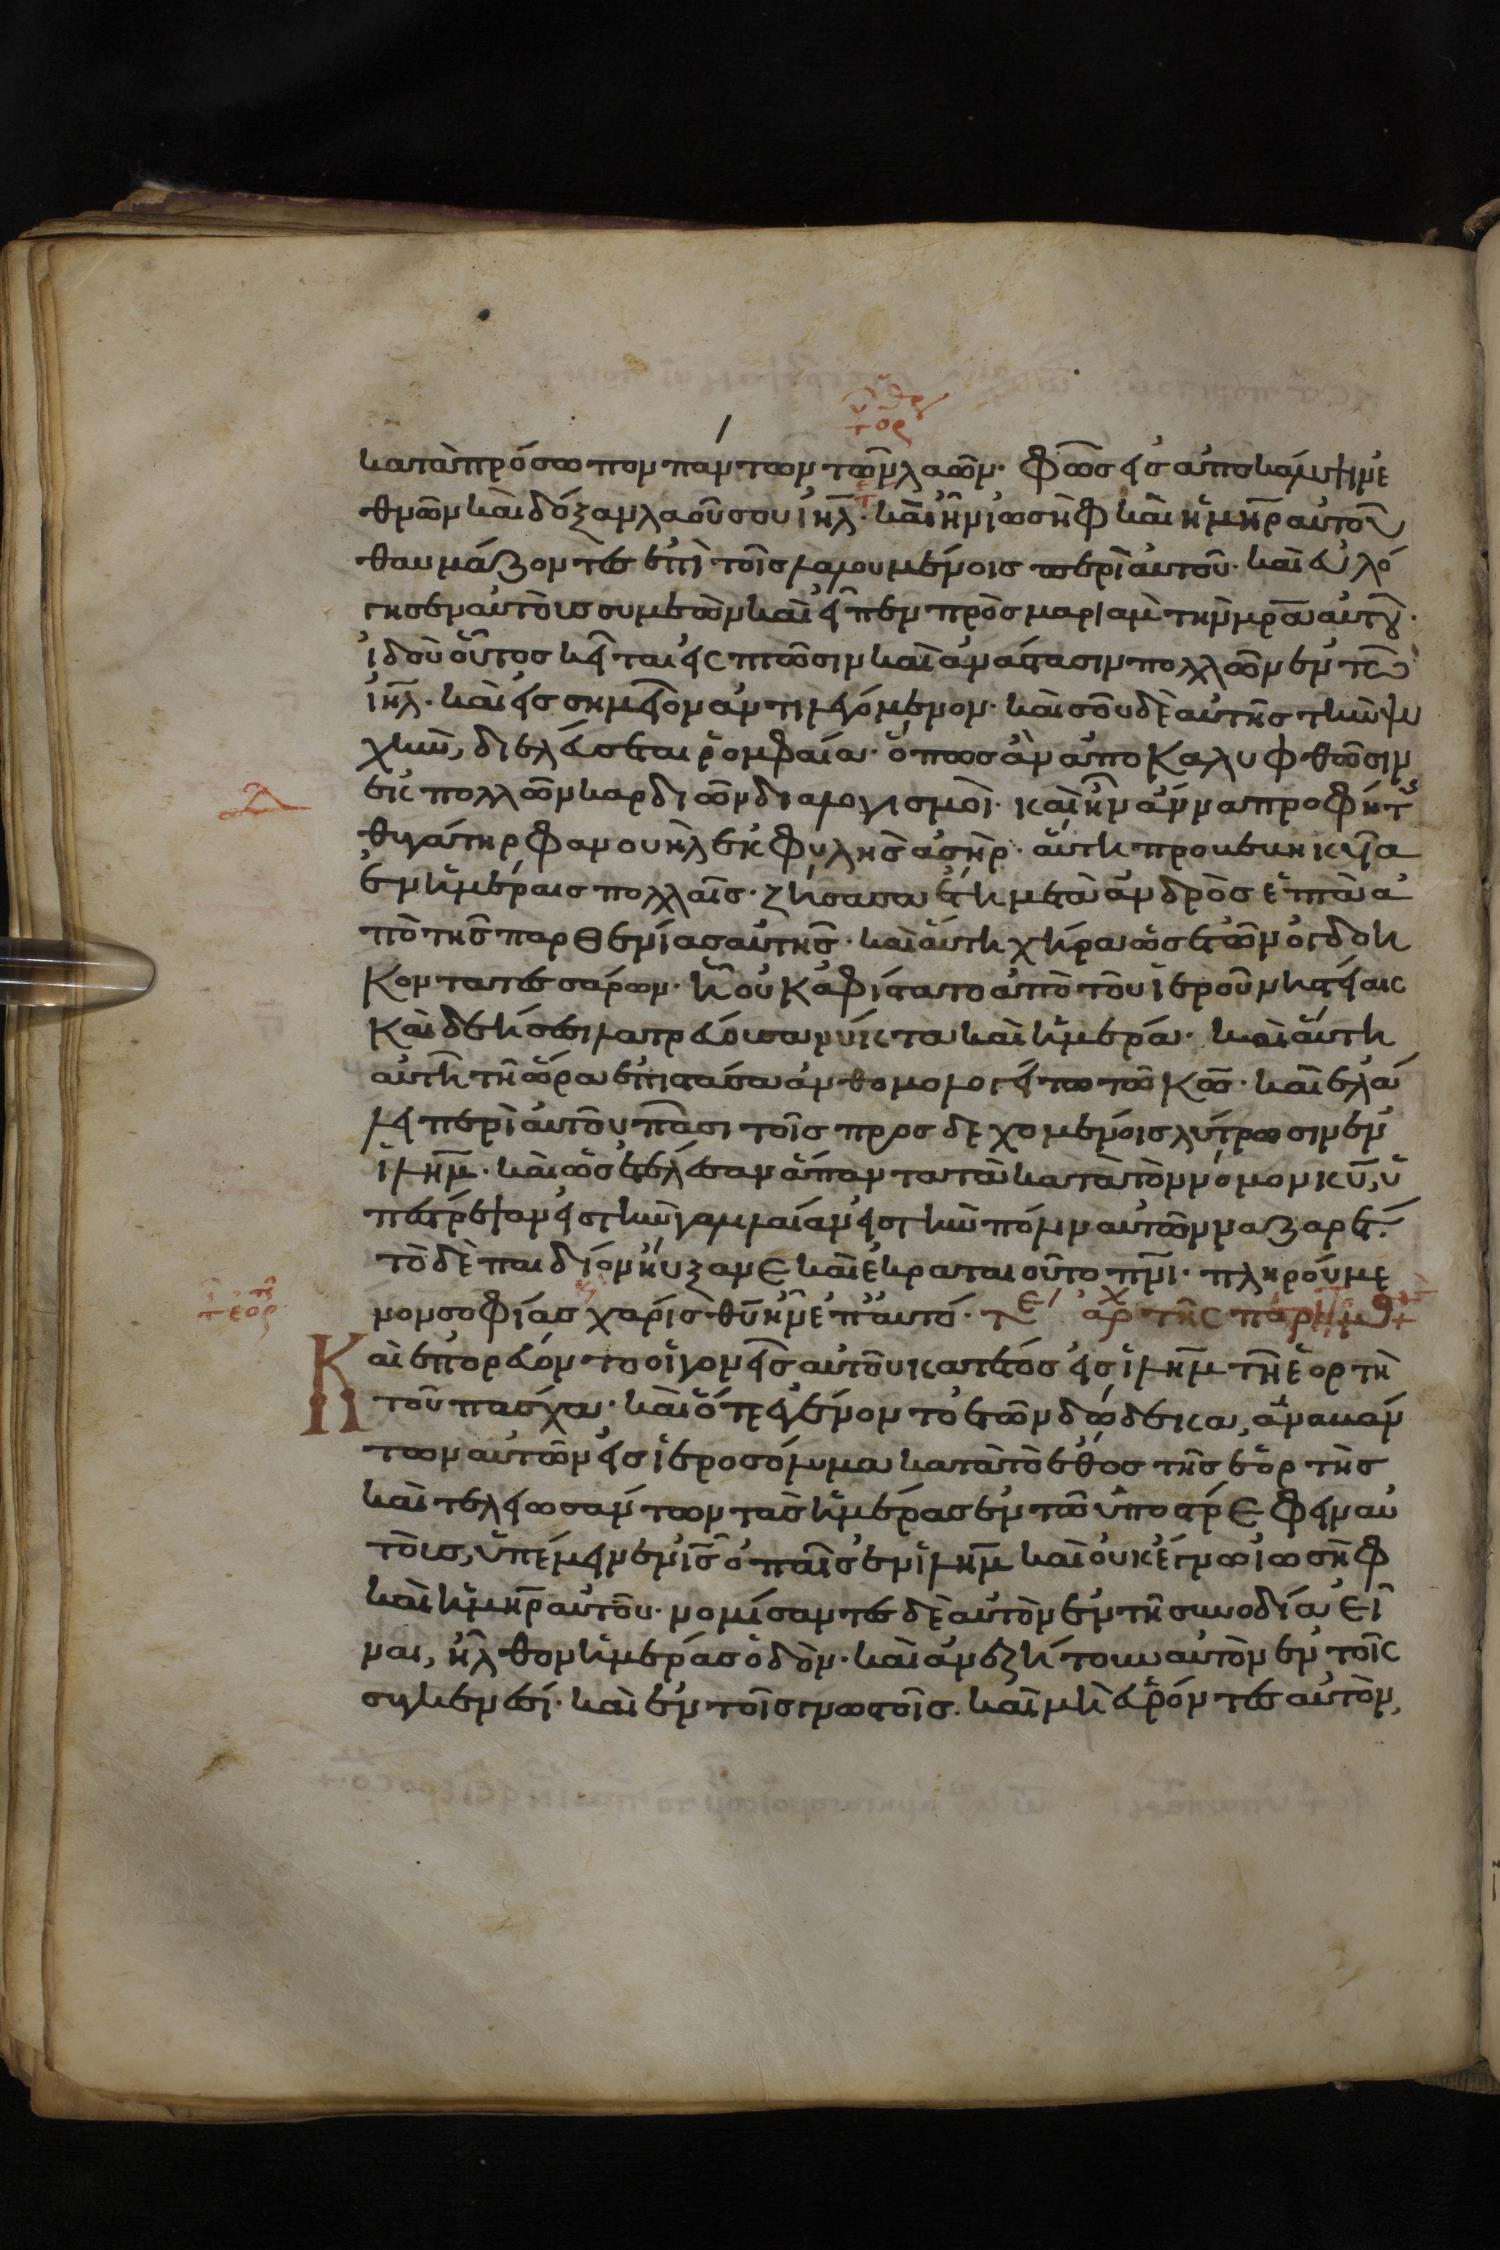 κατὰ πρόσωπον πάντων τῶν λαῶν· φῶς εἰς ἀποκάλυψιν ἐ
θνῶν καὶ δόξαν λαοῦ σου ἰηλ· καὶ ἦν ἰωσὴφ καὶ ἡ μηρ αὐτοῦ
θαυμάζοντες ἐπὶ τοῖς λαλουμένοις περὶ αὐτοῦ· καὶ εὐλό
γησεν αὐτοὺς συμεὼν καὶ εἶπεν πρὸς μαριὰμ τὴν μρα αὐτοῦ·
ἰδοὺ οὗτος κεῖται εἰς πτῶσιν καὶ ἀνάστασιν πολλῶν ἐν τῶ
ἰηλ· καὶ εἰς σημεῖον ἀντιλεγόμενον· καὶ σοῦ δὲ αὐτῆς τὴν ψυ
χὴν, διελεύσεται ῥομφαία· ὅπως ἂν ἀποκαλυφθῶσιν
ἐκ πολλῶν καρδιῶν διαλογισμοί· καὶ ἦν ἄννα προφῆτις
θυγάτηρ φανουὴλ ἐκ φυλῆς ἀσήρ· αὕτη προβεβηκυῖα
ἐν ἡμέραις πολλαῖς· ζήσασα ἔτη μετὰ ἀνδρὸς ἑπτὰ ἀ
πὸ τῆς παρθενίας αὐτῆς· καὶ αὕτη χήρα ὡς ἐτῶν ὀγδοη
κοντατεσσάρων· ἣ οὐκ ἀφίστατο ἀπὸ τοῦ ἱεροῦ νηστείαις
καὶ δεήσεσι λατρεύουσα νύκτα καὶ ἡμέραν· καὶ αὕτη
αὐτῆ τῆ ὥρα ἐπιστᾶσα ἀνθομολογεῖτο τῶ κῶ· καὶ ἐλά
λει περὶ αὐτοῦ πᾶσι τοῖς προσδεχομένοις λύτρωσιν ἐν
ἰλημ· καὶ ὡς ἐτέλεσαν ἅπαντα τὰ κατὰ τὸν νόμον κυ, ὑ
πέστρεψαν εἰς τὴν γαλιλαίαν εἰς τὴν πόλιν αὐτῶν ναζαρέτ·
τὸ δὲ παιδίον ηὔξανε καὶ ἐκραταιοῦτο πνι· πληρούμε
νον σοφίας χάρις θυ ἦν ἐπ' αὐτό·
Καὶ ἐπορεύοντο οἱ γονεῖς αὐτοῦ κατέτος εἰς ἰλημ τῆ ἑορτῆ
τοῦ πάσχα· καὶ ὅτε ἐγένετο ἐτῶν δώδεκα, ἀναβάν
των αὐτῶν εἰς ἱεροσόλυμα κατὰ τὸ ἔθος τῆς ἑορτῆς
καὶ τελειωσάντων τὰς ἡμέρας ἐν τῶ ὑποστρέφειν αὐ
τοὺς, ὑπέμεινεν ις ὁ παῖς ἐν ἰλημ καὶ οὐκ ἔγνω ἰωσὴφ
καὶ ἡ μηρ αὐτοῦ· νομίσαντες δὲ αὐτὸν ἐν τῆ συνοδία εἶ
ναι, ἦλθον ἡμέρας ὁδὸν· καὶ ἀνεζήτουν αὐτὸν ἐν τοῖς
συγγενέσι· καὶ ἐν τοῖς γνωστοῖς· καὶ μὴ εὑρόντες αὐτὸν,